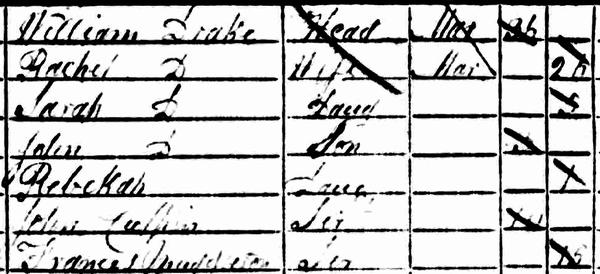 William Drake Head Mar 26
Rachel D Wife Mar 26
Sarah D Daug 5
John D Son
Rebekah Daug 1
John Ser
Frances Ser 15